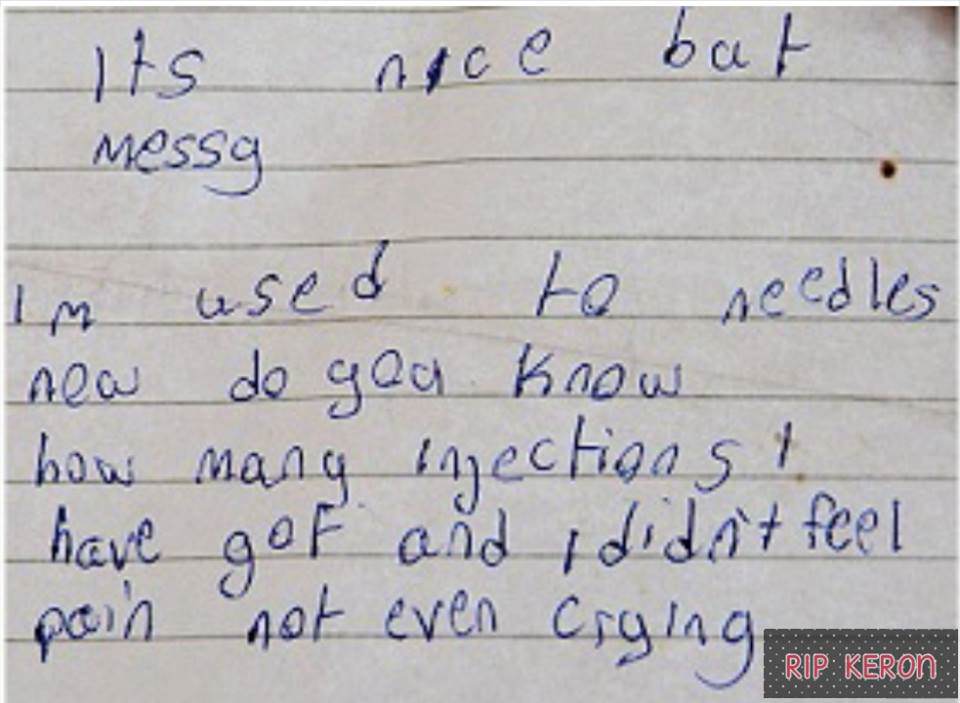 Its nice bat
messy
Im used to needles
now do you know
how many injections I
have got and I didn't feel
pain not even crying
RIP KERON